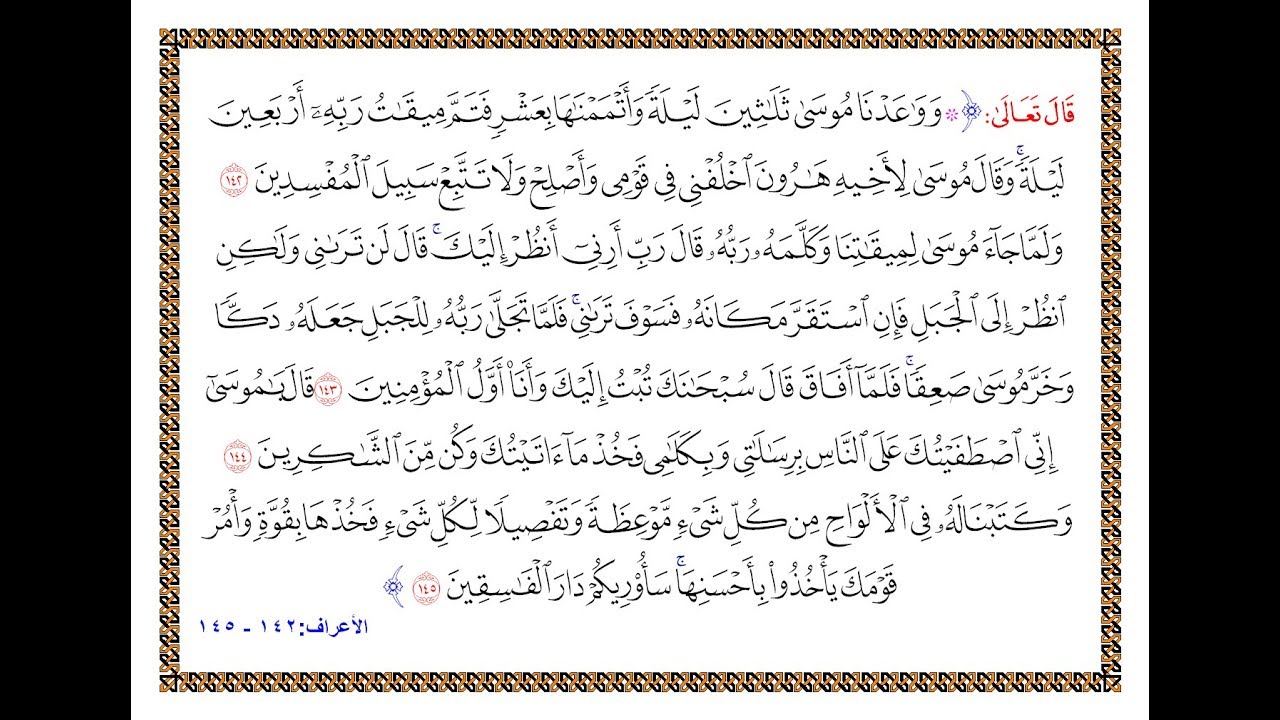 قَالَ تَعَالَىٰ: ﴿ ۞ وَوَٰعَدۡنَا مُوسَىٰ ثَلَٰثِينَ لَيۡلَةٗ وَأَتۡمَمۡنَٰهَا بِعَشۡرٖ فَتَمَّ مِيقَٰتُ رَبِّهِۦٓ أَرۡبَعِينَ
لَيۡلَةٗۚ وَقَالَ مُوسَىٰ لِأَخِيهِ هَٰرُونَ ٱخۡلُفۡنِي فِي قَوۡمِي وَأَصۡلِحۡ وَلَا تَتَّبِعۡ سَبِيلَ ٱلۡمُفۡسِدِينَ ١٤٢
وَلَمَّا جَآءَ مُوسَىٰ لِمِيقَٰتِنَا وَكَلَّمَهُۥ رَبُّهُۥ قَالَ رَبِّ أَرِنِيٓ أَنظُرۡ إِلَيۡكَۚ قَالَ لَن تَرَىٰنِي وَلَٰكِنِ
ٱنظُرۡ إِلَى ٱلۡجَبَلِ فَإِنِ ٱسۡتَقَرَّ مَكَانَهُۥ فَسَوۡفَ تَرَىٰنِيۚ فَلَمَّا تَجَلَّىٰ رَبُّهُۥ لِلۡجَبَلِ جَعَلَهُۥ دَكّٗا
وَخَرَّ مُوسَىٰ صَعِقٗاۚ فَلَمَّآ أَفَاقَ قَالَ سُبۡحَٰنَكَ تُبۡتُ إِلَيۡكَ وَأَنَا۠ أَوَّلُ ٱلۡمُؤۡمِنِينَ ١٤٣ قَالَ يَٰمُوسَىٰٓ
إِنِّي ٱصۡطَفَيۡتُكَ عَلَى ٱلنَّاسِ بِرِسَٰلَٰتِي وَبِكَلَٰمِي فَخُذۡ مَآ ءَاتَيۡتُكَ وَكُن مِّنَ ٱلشَّٰكِرِينَ ١٤٤
وَكَتَبۡنَا لَهُۥ فِي ٱلۡأَلۡوَاحِ مِن كُلِّ شَيۡءٖ مَّوۡعِظَةٗ وَتَفۡصِيلٗا لِّكُلِّ شَيۡءٖ فَخُذۡهَا بِقُوَّةٖ وَأۡمُرۡ
قَوۡمَكَ يَأۡخُذُواْ بِأَحۡسَنِهَاۚ سَأُوْرِيكُمۡ دَارَ ٱلۡفَٰسِقِينَ ١٤٥ ﴾
الأعراف: ١٤٢ - ١٤٥